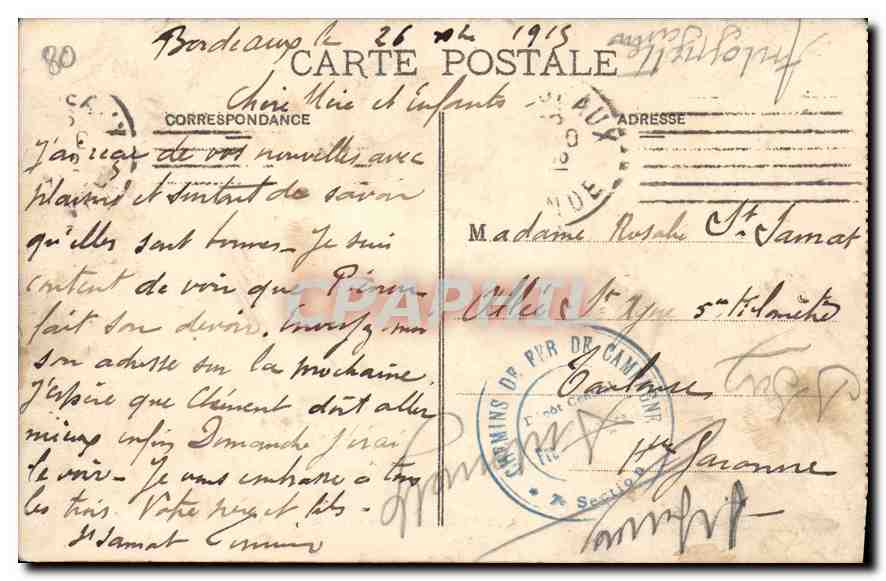 80
Bordeaux le 26 1915
CARTE POSTALE
Chère Mère et Enfants
CORRESPONDANCE
ADRESSE
J'ai reçu de vos nouvelles avec
plaisir et surtout de savoir
qu'elles sont bonnes - Je suis
content de voir que
fait son devoir. Envoyez moi
son adresse sur la prochaine
J'espère que Clément doit aller
mieux enfin Dimanche j'irai
le voir - Je vous embrasse à tous
les trois. Votre père et fils -
St Jamat
Madame Rosalie St Jamat
Allée St Agne 5me Kilomètre
Toulouse
Hte Garonne
CHEMINS DE FER DE CAMPAGNE
Dépôt
* 7e Section *
CPAPHIL